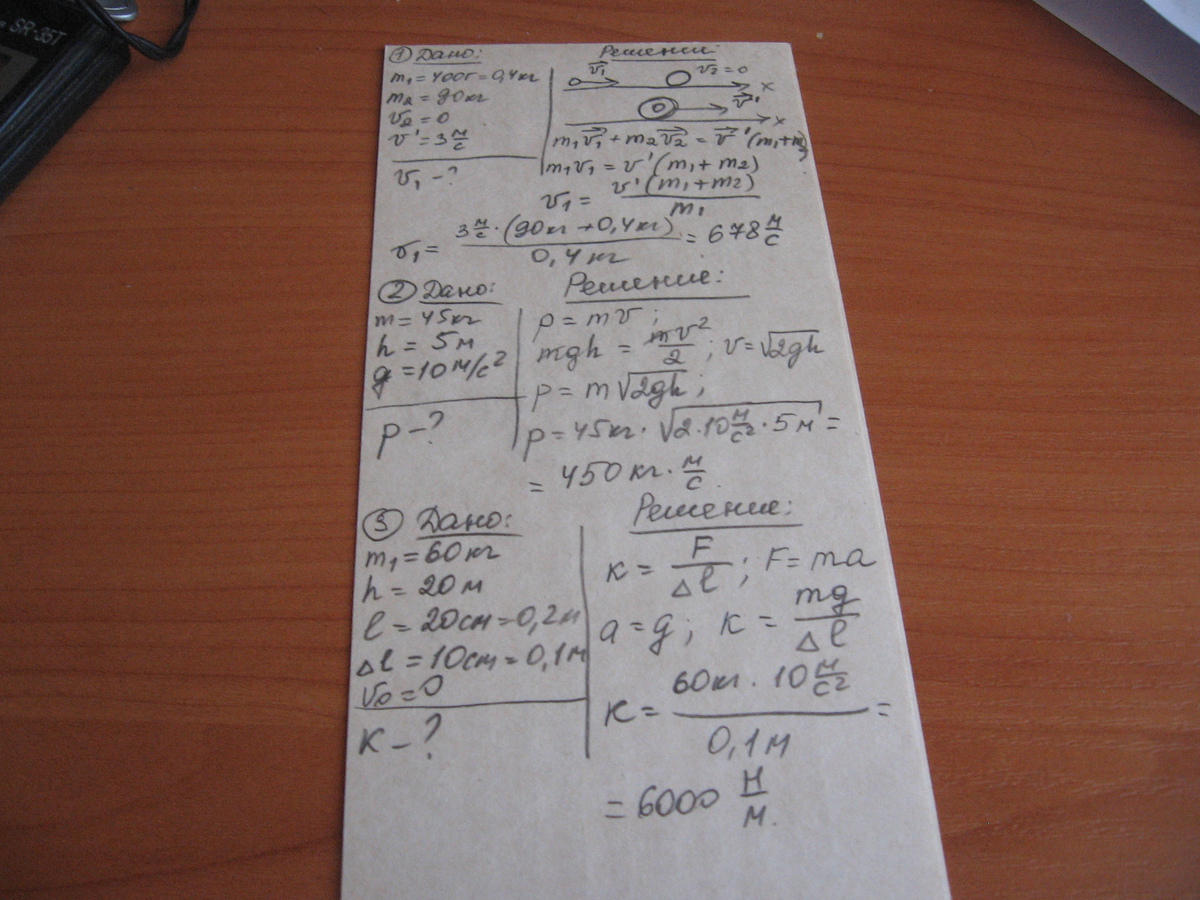 SR-35T
① Дано:
m₁ = 400г = 0,4кг
m₂ = 90кг
v₂ = 0
v' = 3 м/с
v₁ - ?
Решение
v₁ v₂ = 0
x
v'
x
m₁v₁ + m₂v₂ = v'(m₁+m₂)
m₁v₁ = v'(m₁ + m₂)
v₁ = v'(m₁+m₂) / m₁
v₁ = 3 м/с · (90кг + 0,4кг) / 0,4кг = 678 м/с
② Дано:
m = 45кг
h = 5м
g = 10 м/с²
p - ?
Решение:
p = mv ;
mgh = mv²/2 ; v = √2gh
p = m√2gh ;
p = 45кг · √2·10 м/с² · 5м =
= 450 кг · м/с.
③ Дано:
m₁ = 60кг
h = 20м
l = 20см = 0,2м
Δl = 10см = 0,1м
v₀ = 0
к - ?
Решение:
к = F/Δl ; F = ma
a = g ; к = mg/Δl
к = 60кг · 10 м/с² / 0,1м =
= 6000 Н/м.